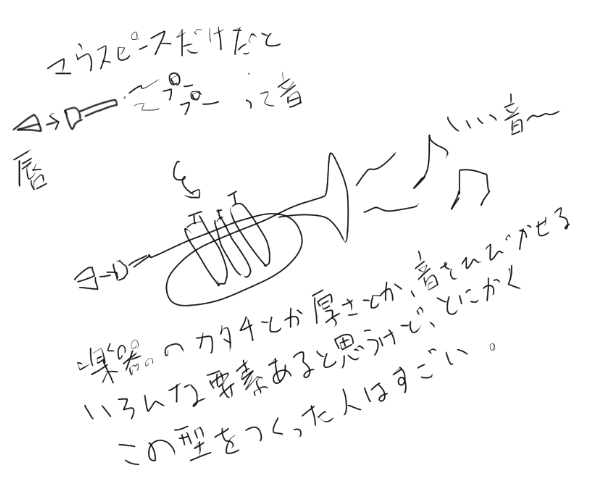 マウスピースだけだと
プープーって音
唇
いい音〜
楽器のカタチとか厚さとか、音をひびかせる
いろんな要素あると思うけど、とにかく
この型をつくった人はすごい。